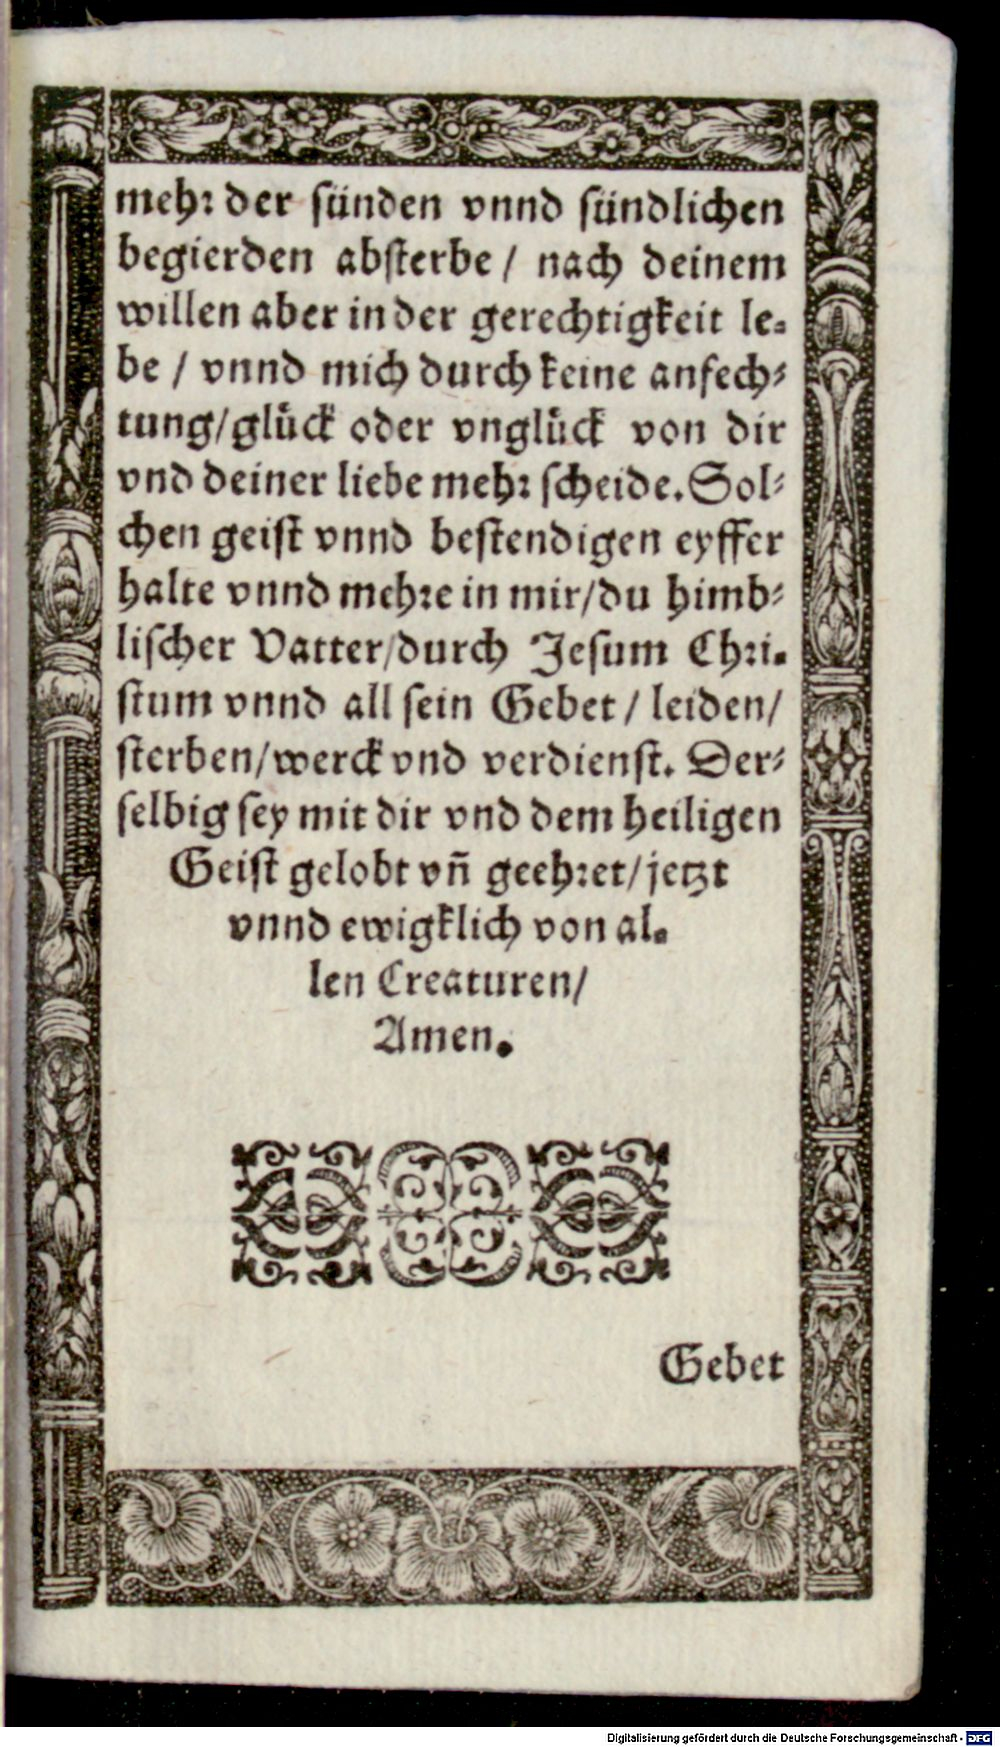 mehr der sünden vnnd sündlichen
begierden absterbe / nach deinem
willen aber in der gerechtigkeit le-
be / vnnd mich durch keine anfech-
tung/glück oder vnglück von dir
vnd deiner liebe mehr scheide. Sol-
chen geist vnnd bestendigen eyffer
halte vnnd mehre in mir/du himb-
lischer Vatter/durch Jesum Chri-
stum vnnd all sein Gebet / leiden/
sterben/werck vnd verdienst. Der-
selbig sey mit dir vnd dem heiligen
Geist gelobt vñ geehret/jetzt
vnnd ewigklich von al-
len Creaturen/
Amen.
Gebet
Digitalisierung gefördert durch die Deutsche Forschungsgemeinschaft - DFG